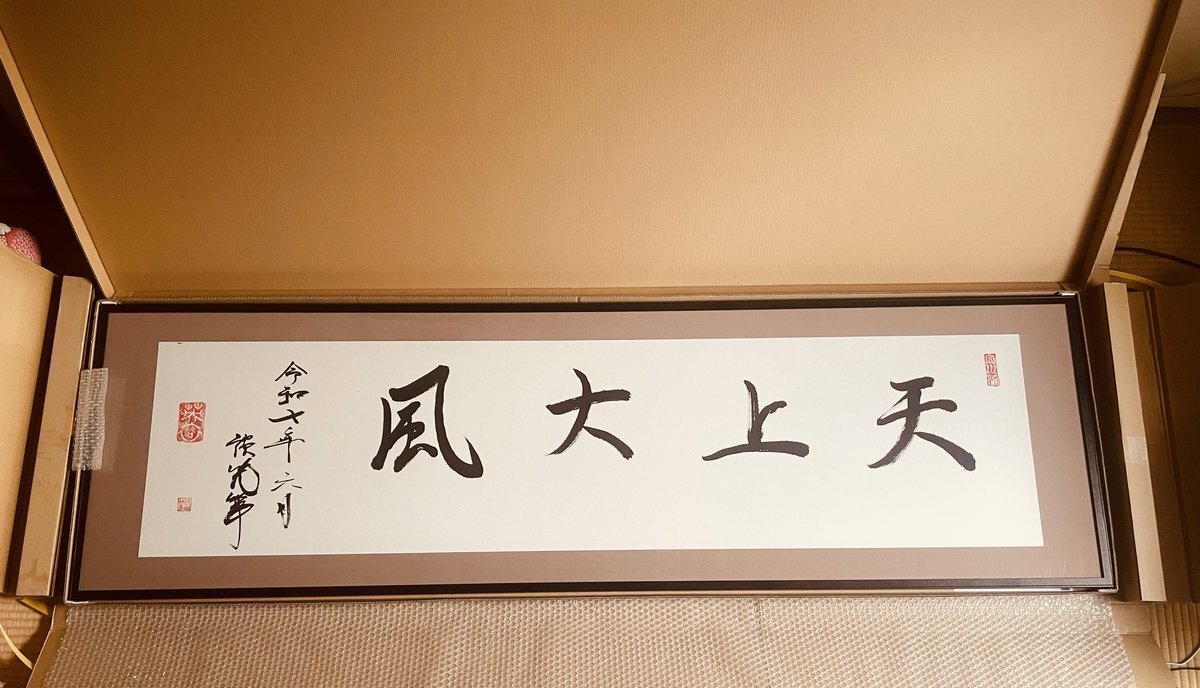 天上大風
令和七年六月